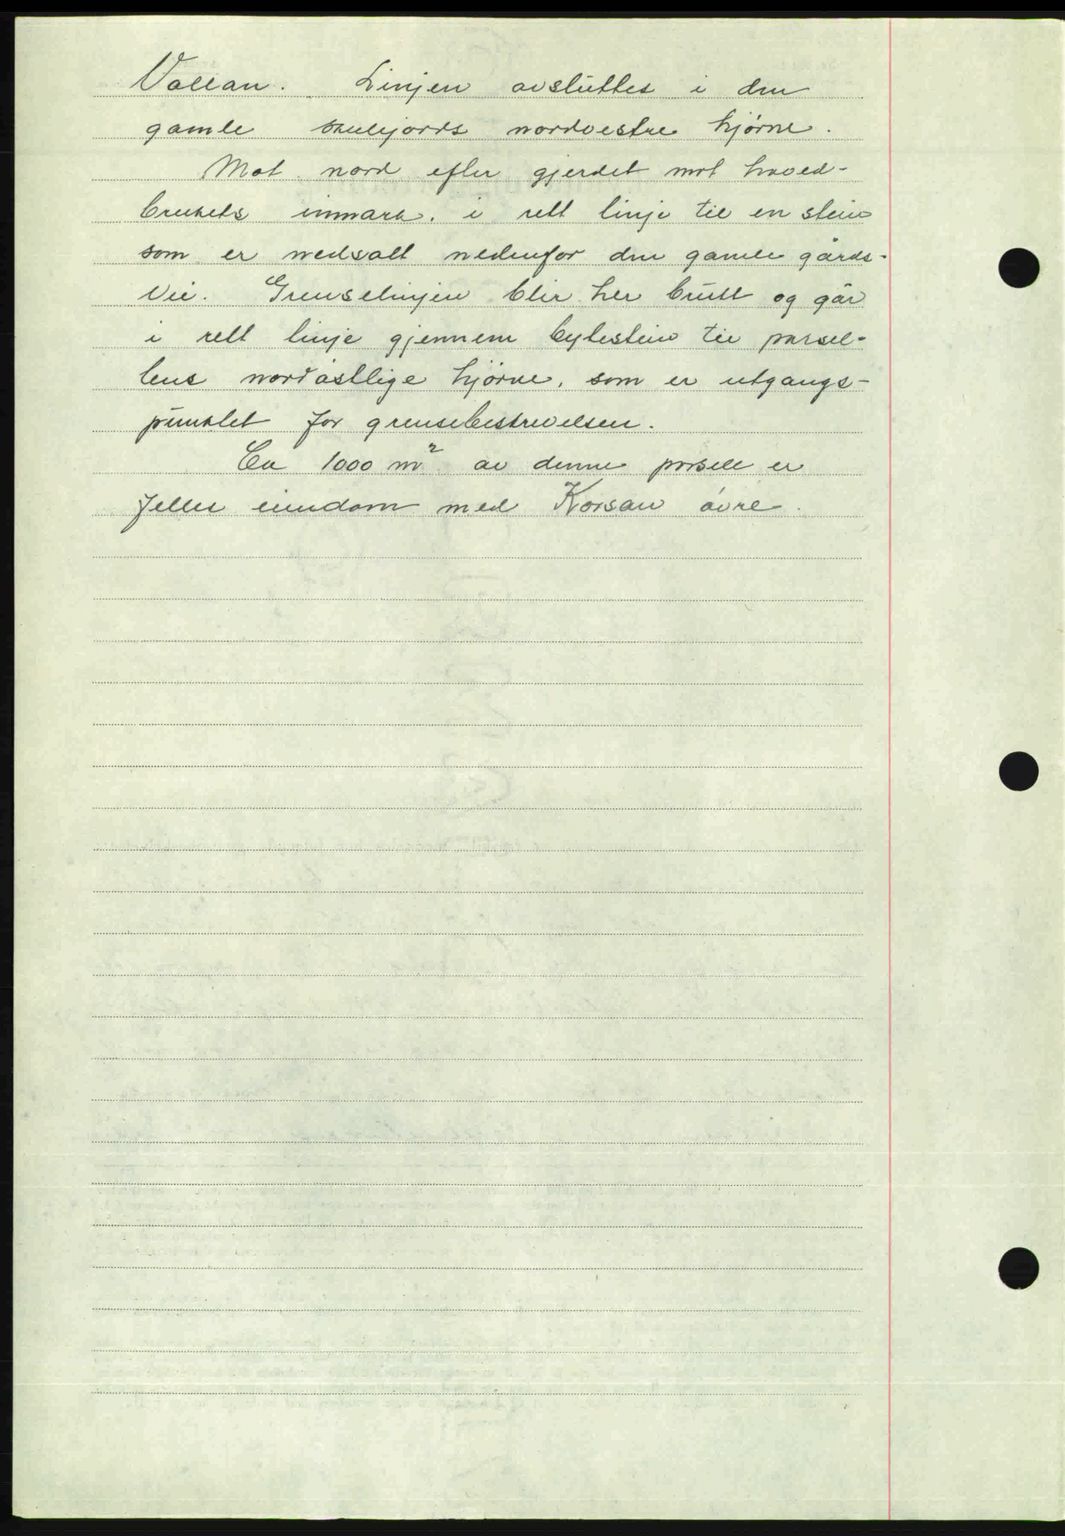 Vollan. Linjen avsluttes i den
gamle skulejords nordvestre hjørne.
Mot nord efter gjerdet mot hoved-
brukets innmark, i rett linje til en stein
som er nedsatt nedenfor den gamle gårds-
vei. Grenselinjen blir her brutt og går
i rett linje gjennem bytestein til parsel-
lens nordøstlige hjørne, som er utgangs-
punktet for grensebeskrivelsen.
Ca 1000 m² av denne parsell er
felles eiendom med Korsan øvre.